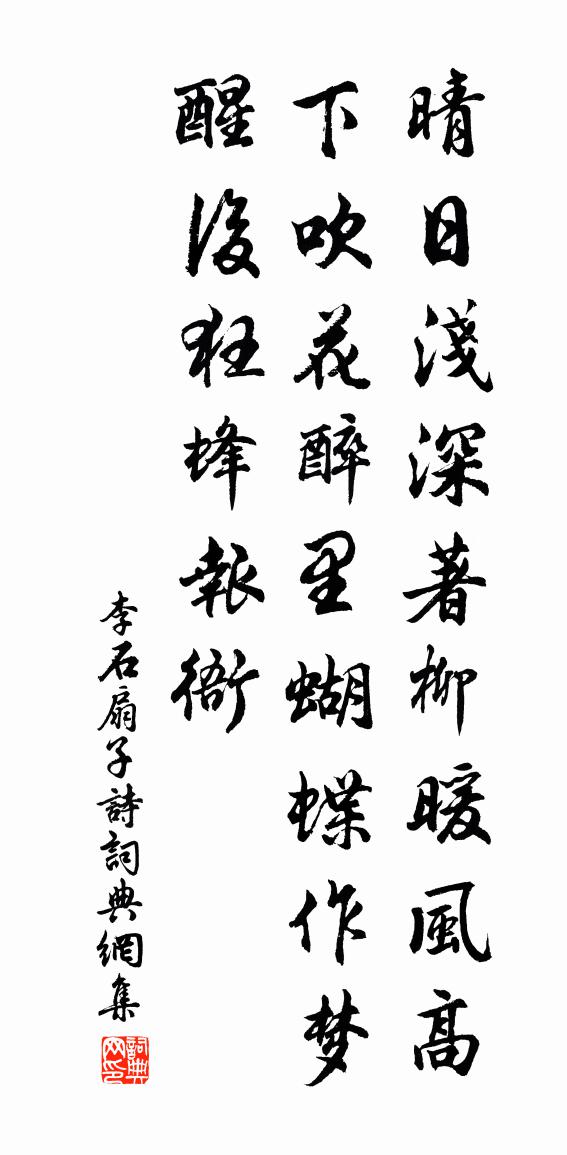 晴日淺深著柳暖風高
下吹花醉里蝴蝶作梦
醒後狂蜂報衙
李石扇子詩詞典網集
詞典网印